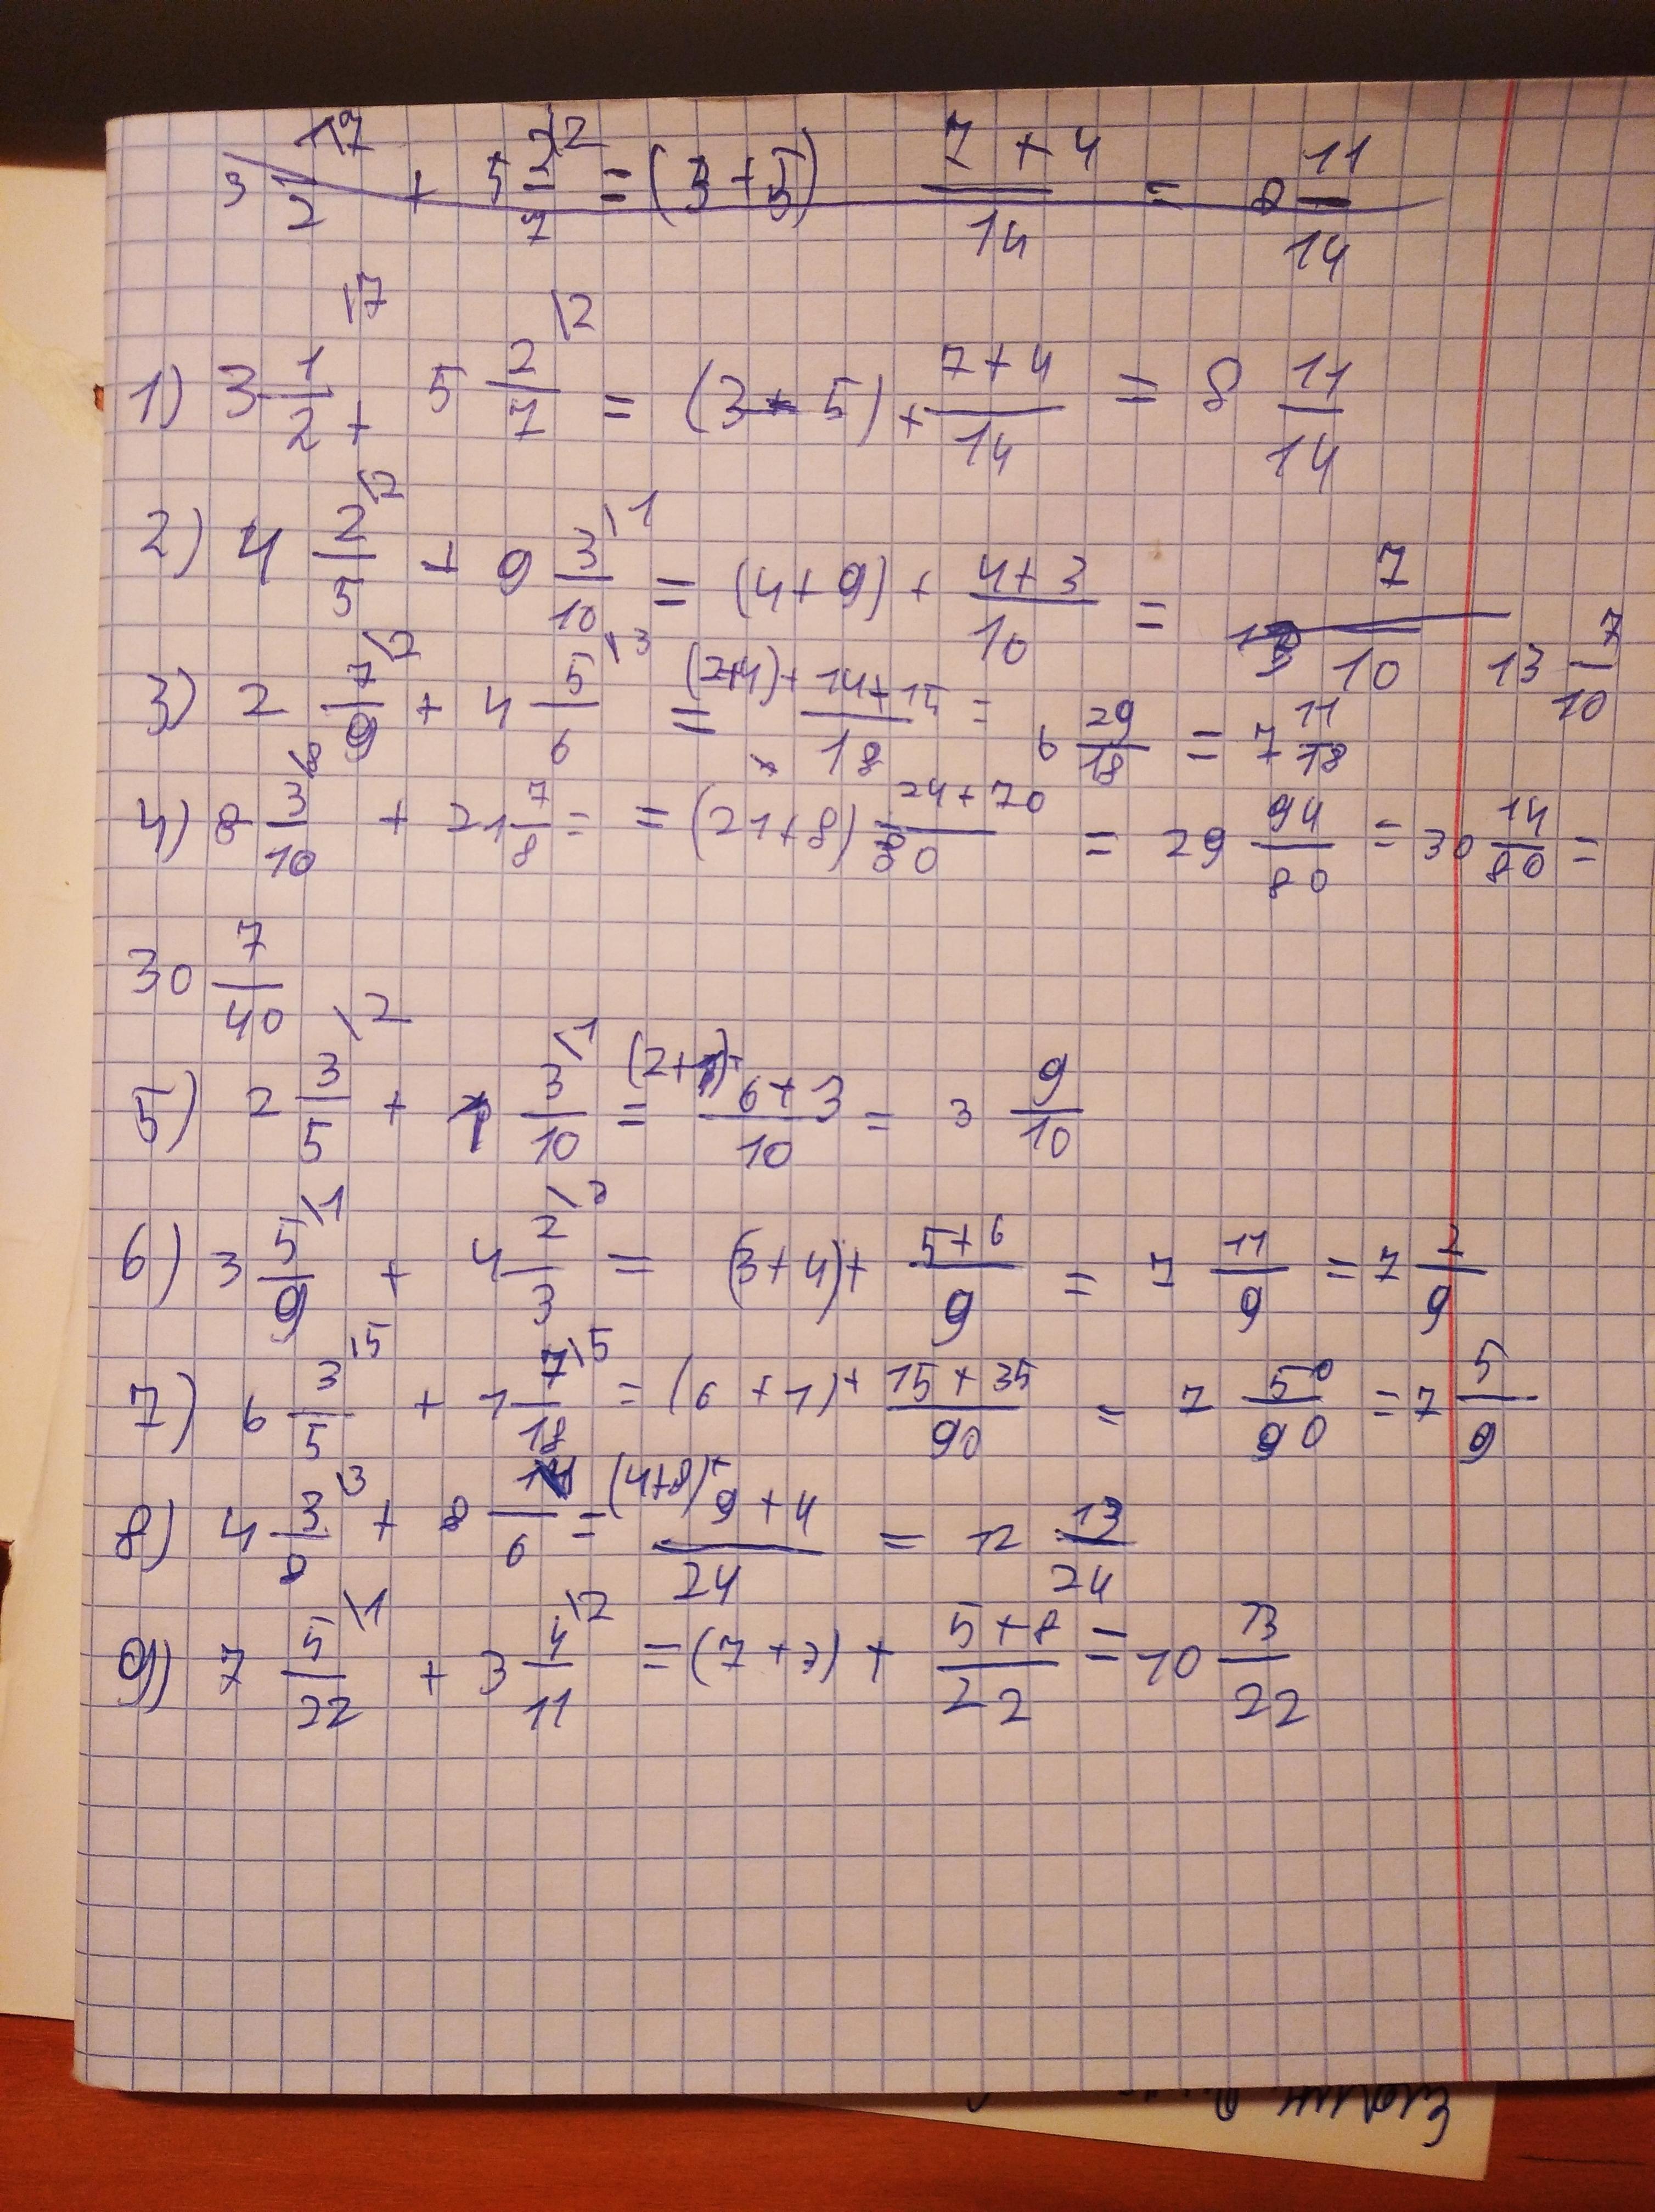 3 1/2 \7 + 5 2/7 \2 = (3 + 5) 7 + 4/14 = 8 11/14
1) 3 1/2 \7 + 5 2/7 \2 = (3 + 5) + 7 + 4/14 = 8 11/14
2) 4 2/5 \2 + 9 3/10 \1 = (4 + 9) + 4 + 3/10 = 13 7/10 13 7/10
3) 2 7/9 \2 + 4 5/6 \3 = (2+4) + 14 + 15/18 = 6 29/18 = 7 11/18
4) 8 3/10 \8 + 21 7/8 = = (21 + 8) 24 + 70/80 = 29 94/80 = 30 14/80 =
30 7/40
5) 2 3/5 \2 + 1 3/10 \1 = (2+1)+ 6 + 3/10 = 3 9/10
6) 3 5/9 \1 + 4 2/3 \3 = (3 + 4) + 5 + 6/9 = 7 11/9 = 7 2/9
7) 6 3/5 \5 + 1 7/18 \5 = (6 + 1) + 15 + 35/90 = 7 50/90 = 7 5/9
8) 4 3/8 \3 + 8 1/6 \4 = (4+8)+ 9 + 4/24 = 12 13/24
9) 7 5/22 \1 + 3 4/11 \2 = (7 + 3) + 5 + 8/22 = 10 13/22